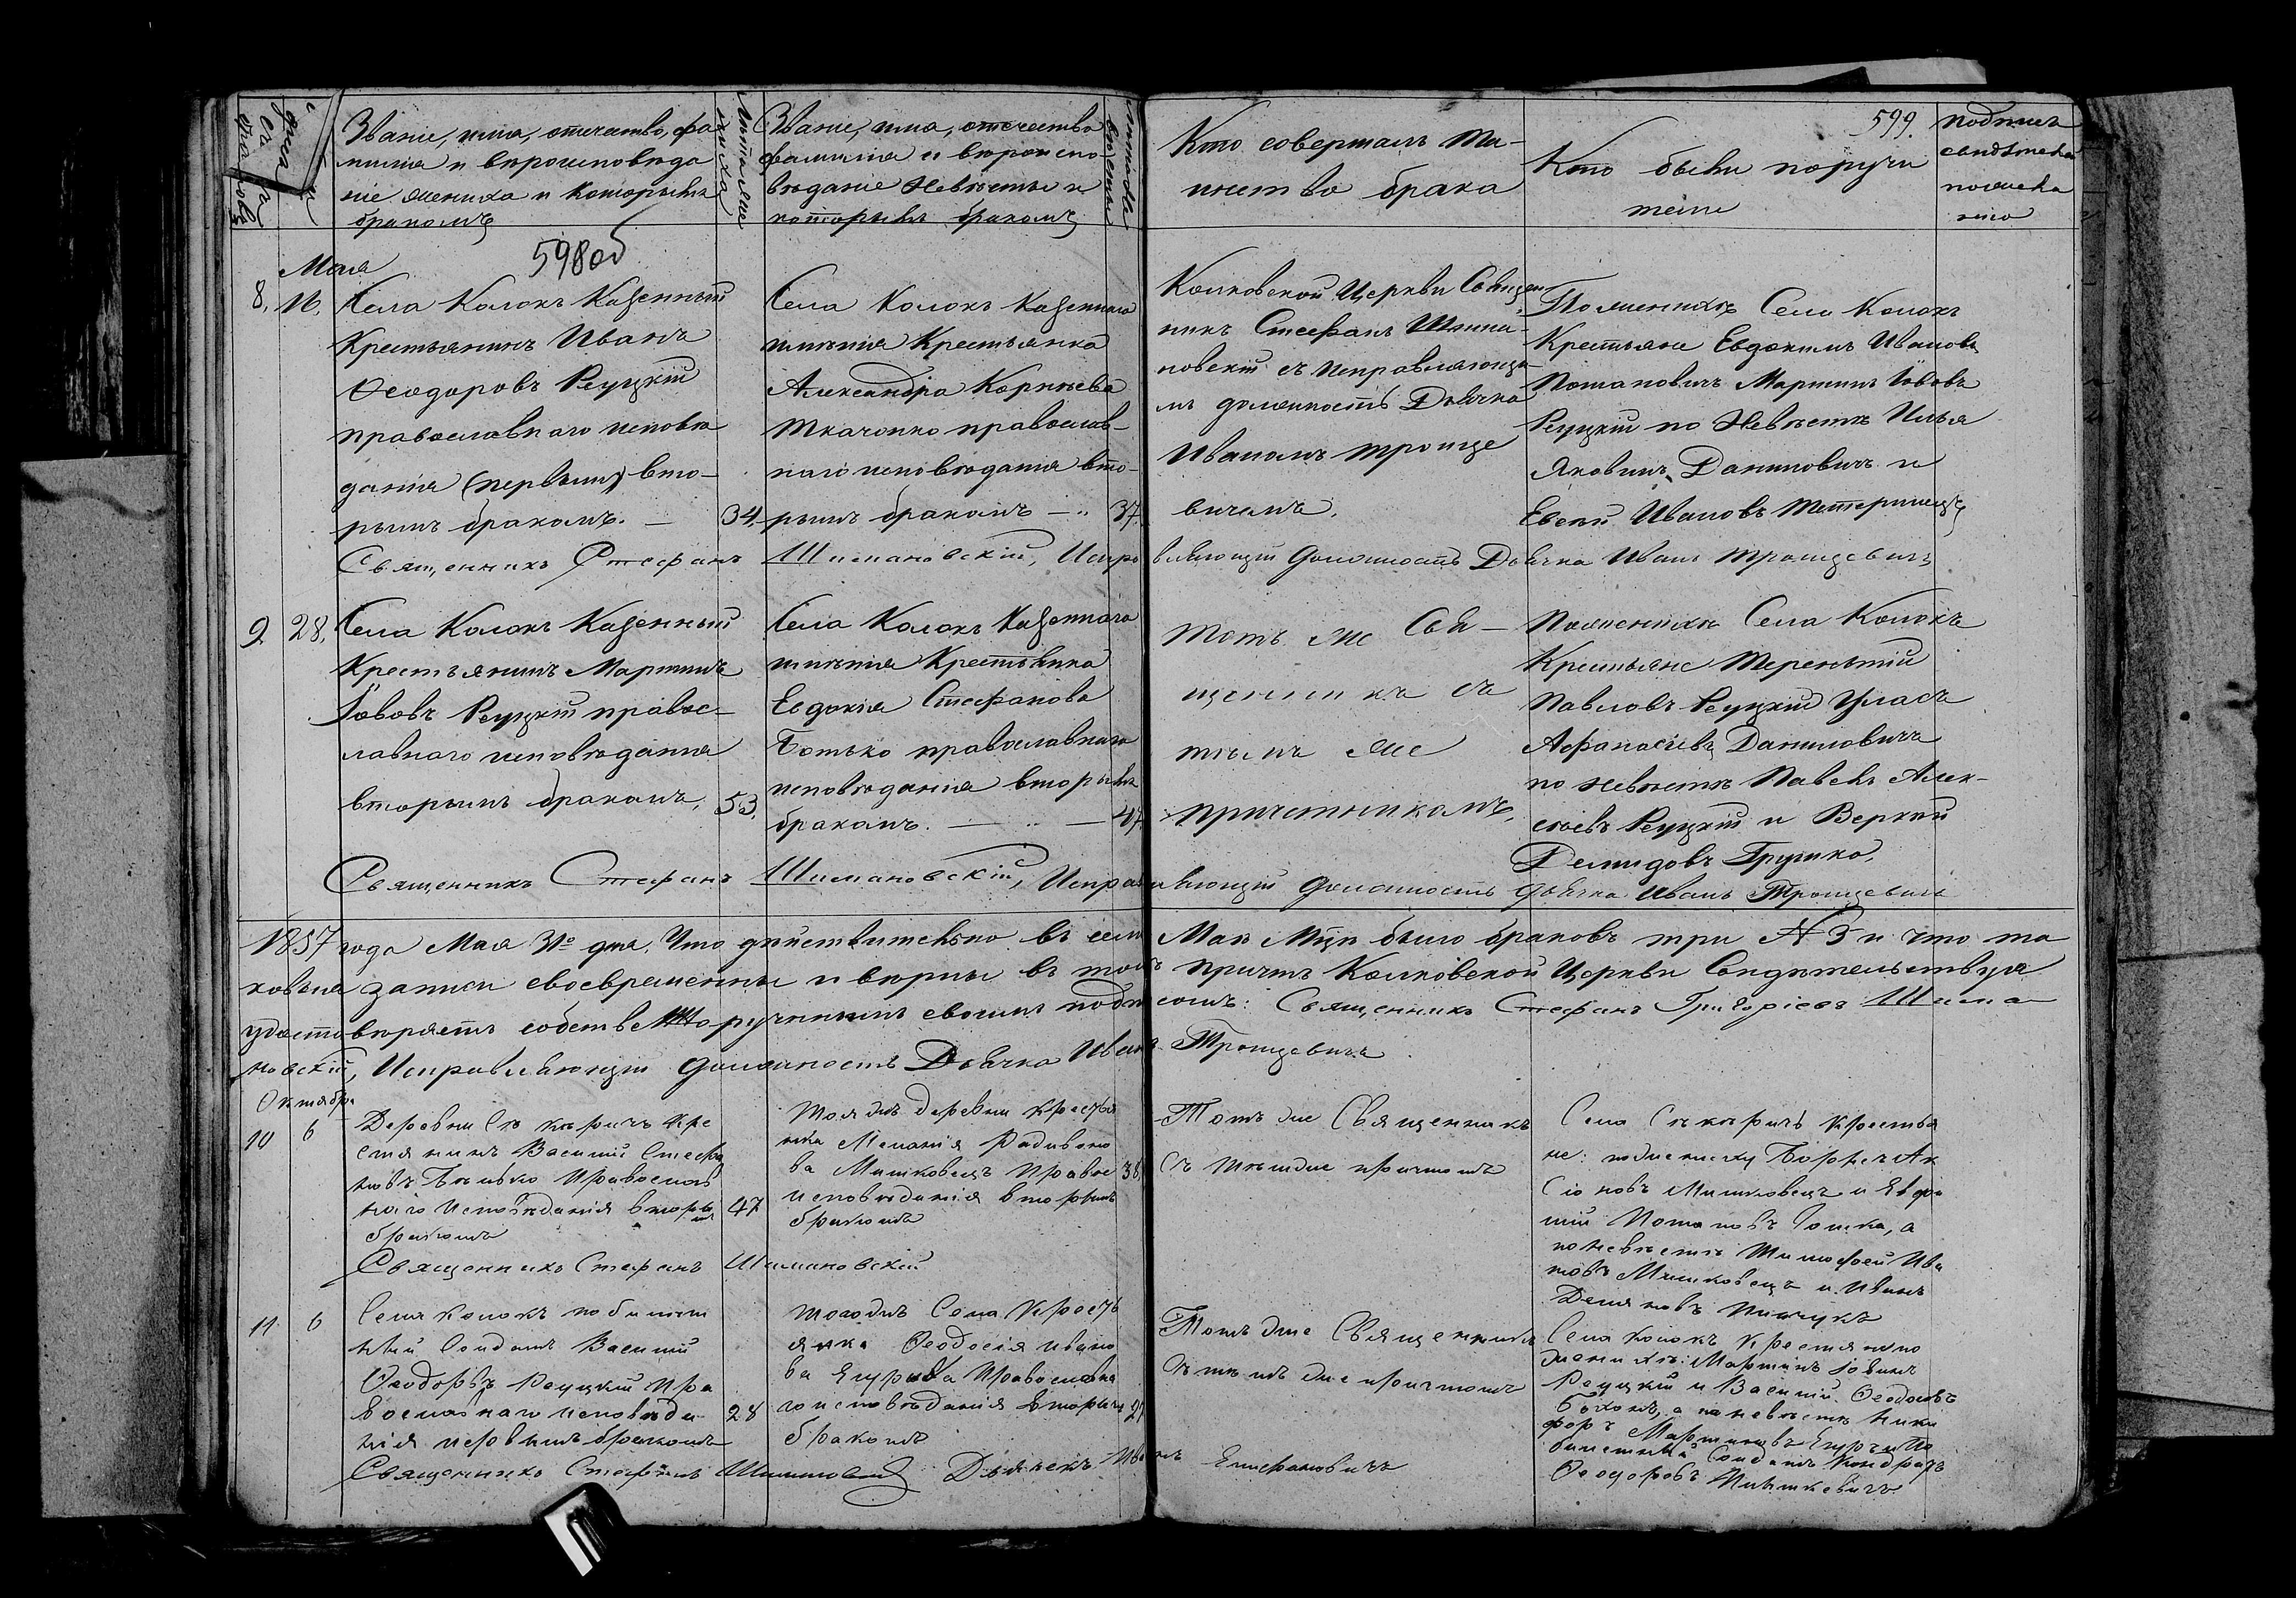 599.
Званіе, имя, отечество, фа
милія и вѣроисповѣда
ніе жениха и которымъ
бракомъ
Лѣта жениха
Званіе, имя, отечество
фамилія и вѣроиспо-
вѣданіе Невѣсты и
которымъ бракомъ
Кто совершалъ та-
инство брака
Кто были поручи
тели
подпись
свидѣтелей
по желанію
598об
Мая
8. 16.
Села Колокъ Казенный
Крестьянинъ Иванъ
Ѳеодоровъ Реуцкій
православнаго исповѣ
данія (первымъ) вто-
рымъ бракомъ. — 34.
Села Колокъ Казеннаго
имѣнія Крестьянка
Александра Корнѣева
Ткаченко православ-
наго исповѣданія вто-
рымъ бракомъ — 37.
Колковской Церкви Священ
никъ Стефанъ Шима-
новскій съ исправляющи
мъ должность Дьячка
Иваномъ Троице
вичемъ.
По женихѣ Села Колокъ
Крестьяне Евдокимъ Ивановъ
Потаповичъ Мартинъ Іововъ
Реуцкій по Невѣстѣ Илья
Яковлевъ Даниловичъ и
Евсей Ивановъ
Священникъ Стефанъ Шимановскій, Исправляющій должность Дьячка Иванъ Троицевичъ
9 28.
Села Колокъ Казенный
Крестьянинъ Мартинъ
Іововъ Реуцкій правос-
лавнаго исповѣданія
вторымъ бракомъ, 53.
Села Колокъ Казеннаго
имѣнія Крестьянка
Евдокія Стефанова
Ботько православнаго
исповѣданія вторымъ
бракомъ. — 47.
Тотъ же Свя-
щенникъ съ
тѣмъ же
причетникомъ.
По женихѣ Села Колокъ
Крестьяне Терентій
Павловъ Реуцкій Уласъ
Афанасіевъ Даниловичъ
по невѣстѣ Павелъ Алек-
сѣевъ Реуцкій и
Демидовъ Грушко.
Священникъ Стефанъ Шимановскій, Исправляющій должность Дьячка Иванъ Троицевичъ
1857 года Мая 31го дня. Что дѣйствительно въ семъ Маѣ Мцѣ было браковъ три № 3 и что та
ковыя записи своевременны и вѣрны въ томъ причтъ Колковской Церкви Свидѣтельствуя
удостовѣряетъ собственноручнымъ своимъ подписомъ: Священникъ Стефанъ Григоріевъ Шима
новскій, Исправляющій должность Дьячка Иванъ Троицевичъ
Октября
10 6
Деревни Секѣричъ Кре
стянинъ Василій Стефа
новъ Православ
наго Исповѣданія вторы
мъ 47
бракомъ
Тояжъ деревни крестья
нка Меланія Радивоно
ва Мишковецъ Православ 38
исповѣданія вторымъ
бракомъ
Тотъ же Священникъ
Съ тѣмже причтомъ
Села Секѣричъ крестья
не: по жениху
Мишковецъ и
Потаповъ а
по невѣстѣ Тимофей Ива
новъ Мишковецъ и Иванъ
Демяновъ Пинчукъ
Священникъ Стефанъ Шимановскій
11 6
Села Колокъ по билет
ный Солдатъ Василій
Ѳеодоровъ Реуцкій Пра
вославнаго исповѣда
нія первымъ бракомъ 28
Тогожъ Села Крестья
янка Ѳеодосія Ивано
ва Православна
го исповѣданія вторымъ
бракомъ
Тотъ же Священникъ
Съ тѣмъ же причтомъ
Села Колокъ Крестяни по
женихѣ: Мартинъ Іовинъ
Реуцкій и Василій
а по невѣстѣ Ники
форъ Мартиновъ
билетный Солдатъ Кондратъ
Ѳеодоровъ
Священникъ Стефанъ Шимановскій Дьячекъ Иванъ Епифановичъ